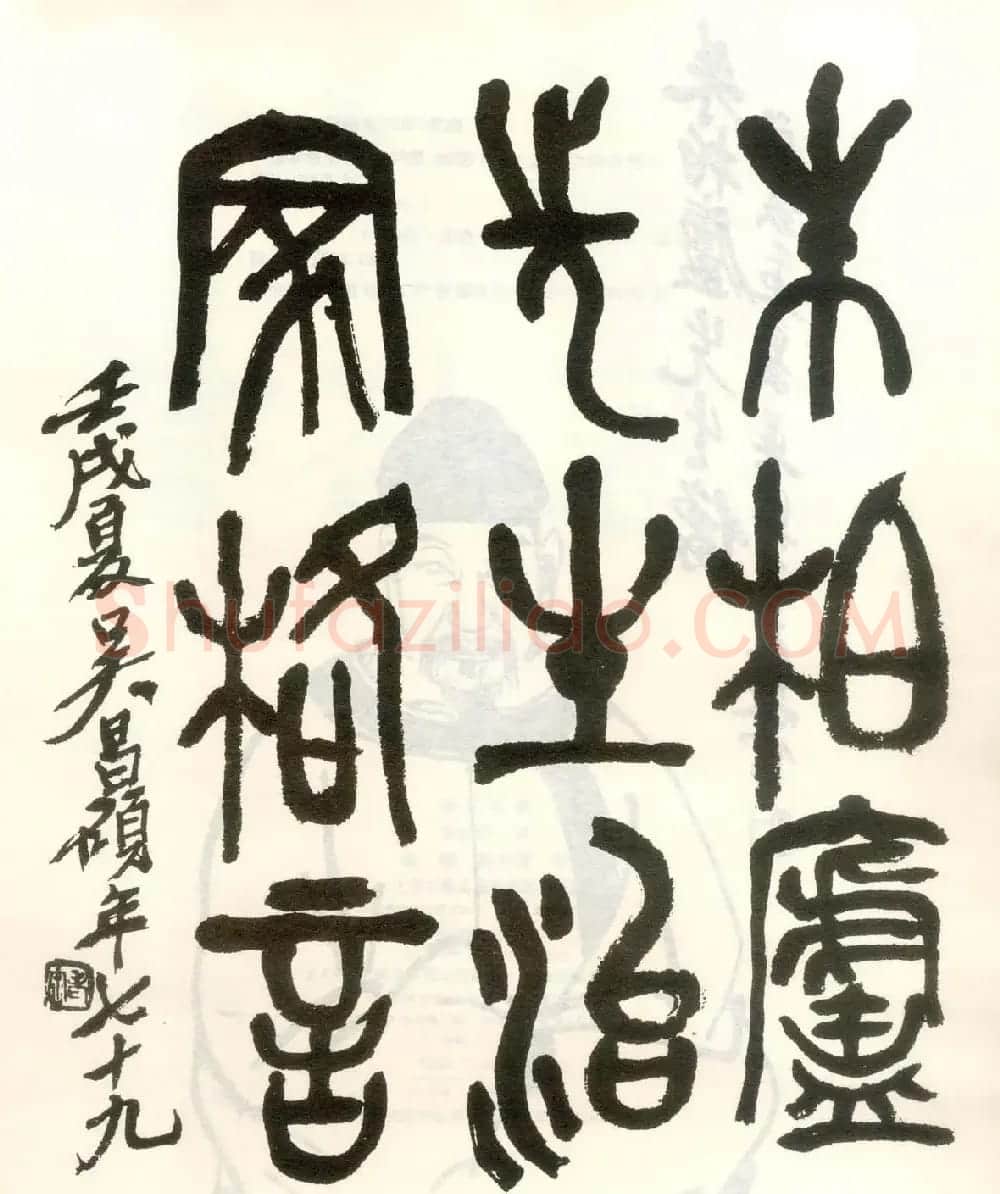 朱柏廬
先生治
家格言
壬戌夏吳昌碩年七十九
Shufaziliao.COM